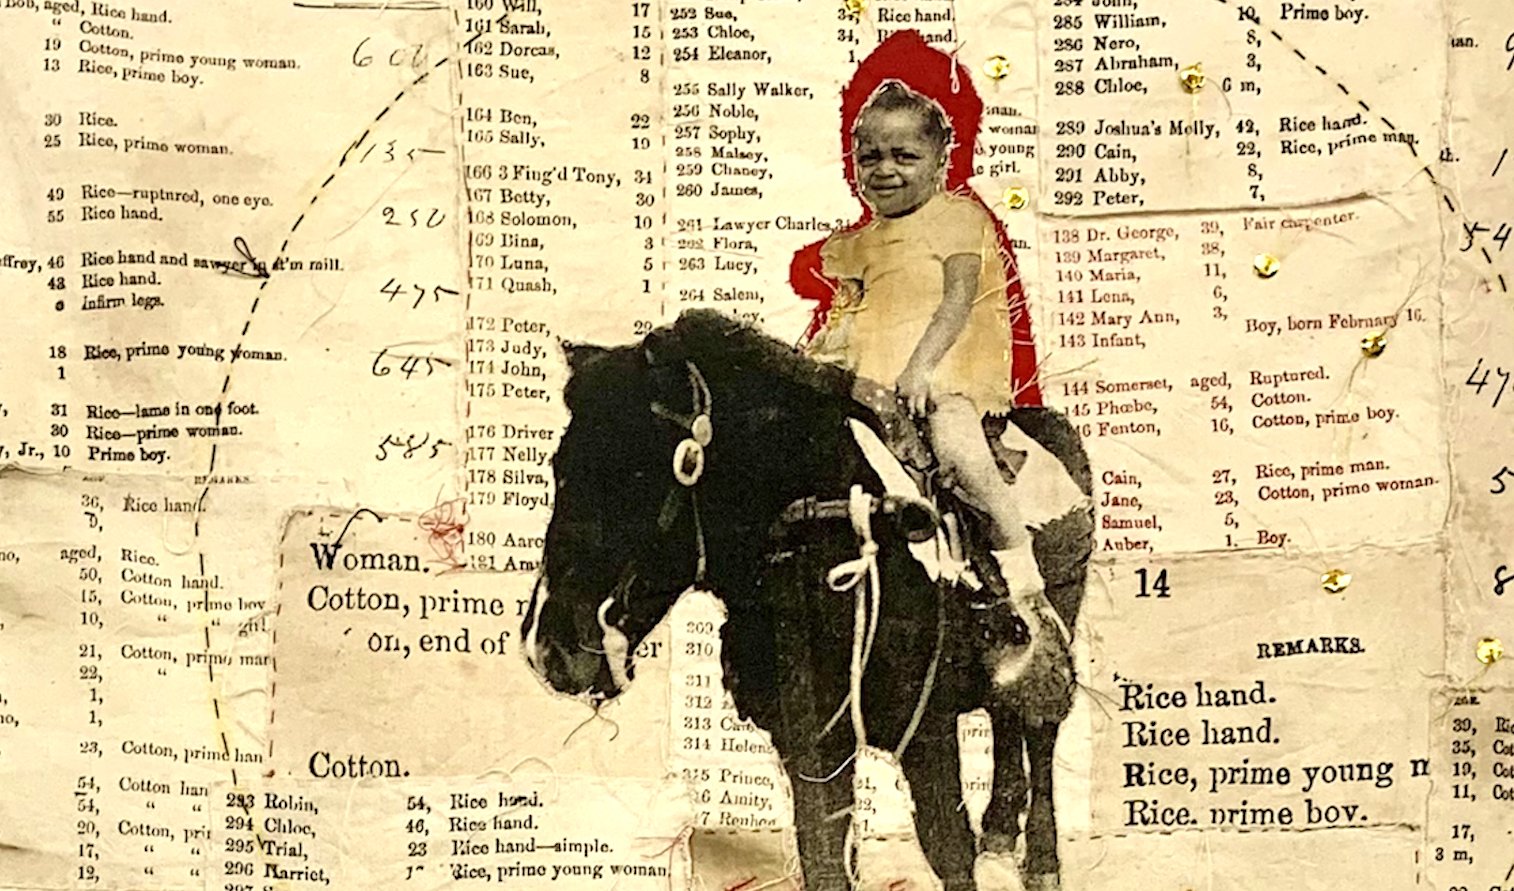 Bob, aged, Rice hand.
" Cotton.
19 Cotton, prime young woman.
13 Rice, prime boy.
600
30 Rice.
25 Rice, prime woman.
1135
49 Rice—ruptured, one eye.
55 Rice hand.
250
46 Rice hand and sawyer in st'm mill.
43 Rice hand.
Infirm legs.
475
18 Rice, prime young woman.
1
645
31 Rice—lame in one foot.
30 Rice—prime woman.
Jr., 10 Prime boy.
585
REMARKS.
36, Rice hand.
9,
aged, Rice.
50, Cotton hand.
15, Cotton, prime boy
10, " " girl
21, Cotton, prime man
22, "
1,
1,
23, Cotton, prime han
54, Cotton han
54, " "
20, Cotton, pri
17, " "
12, " "
160 Will, 17
161 Sarah, 15
162 Dorcas, 12
163 Sue, 8
164 Ben, 22
165 Sally, 19
166 3 Fing'd Tony, 34
167 Betty, 30
168 Solomon, 10
169 Bina, 3
170 Luna, 5
171 Quash, 1
172 Peter, 22
173 Judy,
174 John,
175 Peter,
176 Driver
177 Nelly,
178 Silva,
179 Floyd
180 Aaro
181 Am
Woman.
Cotton, prime
on, end of
er
Cotton.
293 Robin, 54, Rice hand.
294 Chloe, 46, Rice hand.
295 Trial, 23 Rice hand—simple.
296 Harriet, Rice, prime young woman,
252 Sue, Rice hand.
253 Chloe, 34, hand.
254 Eleanor, 1,
255 Sally Walker,
256 Noble,
257 Sophy,
258 Malsey,
259 Chaney,
260 James,
261 Lawyer Charles, 34
262 Flora,
263 Lucy,
264 Salem,
man.
woman
young
girl.
309
310
311
312
313
314 Helen
315 Prince,
16 Amity,
17
284 John,
285 William, 10, Prime boy.
286 Nero, 8,
287 Abraham, 3,
288 Chloe, 6 m,
289 Joshua's Molly, 42, Rice hand.
290 Cain, 22, Rice, prime man.
291 Abby, 8,
292 Peter, 7,
138 Dr. George, 39, Fair carpenter.
139 Margaret, 38,
140 Maria, 11,
141 Lena, 6,
142 Mary Ann, 3,
143 Infant, Boy, born February 16.
144 Somerset, aged, Ruptured.
145 Phœbe, 54, Cotton.
46 Fenton, 16, Cotton, prime boy.
Cain, 27, Rice, prime man.
Jane, 23, Cotton, prime woman.
Samuel, 5,
Auber, 1. Boy.
14
REMARKS.
Rice hand.
Rice hand.
Rice, prime young
Rice, prime boy.
39,
35,
19,
11,
17,
3 m,